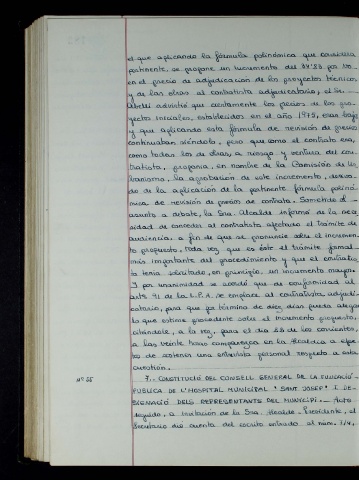 el que aplicando la fórmula polinómica que considera
pertinente, se propone un incremento del 24'23 por 100
en el precio de adjudicación de los proyectos técnicos
y de las obras al contratista adjudicatario, el Sr.
advirtió que ciertamente los precios de los pro-
yectos iniciales, establecidos en el año 1975, eran bajos
y que aplicando esta fórmula de revisión de precios
continuaban siéndolo, pero que como el contrato era,
como todos los de obras a riesgo y ventura del con-
tratista, proponía, en nombre de la Comisión de Ur-
banismo, la aprobación de este incremento, deriva-
do de la aplicación de la pertinente fórmula polinó-
mica de revisión de precios de contrata. Sometido el
asunto a debate, la Sra. Alcalde informó de la nece
sidad de conceder al contratista afectado el trámite de
audiencia, a fin de que se pronuncie sobre el incremen
to propuesto, toda vez que es éste el trámite formal
más importante del procedimiento y que el contratis
ta tenía solicitado, en principio, un incremento mayor.
Y por unanimidad se acordó que de conformidad al
art. 91 de la L.P.A. se emplace al contratista adjudi-
catario, para que en término de diez días pueda alegar
lo que estime procedente sobre el incremento propuesto,
citándole, a la vez, para el día 28 de los corrientes,
a las veinte horas comparezca en la Alcaldía a efec
to de sostener una entrevista personal respecto a esta
cuestión.
Nº 55 7.- CONSTITUCIÓ DEL CONSELL GENERAL DE LA FUNDACIÓ
PÚBLICA DE L'HOSPITAL MUNICIPAL "SANT JOSEP" I DE-
SIGNACIÓ DELS REPRESENTANTS DEL MUNICIPI.- Acto
seguido, a invitación de la Sra. Alcalde-Presidente, el
Secretario dio cuenta del escrito entrado al núm.